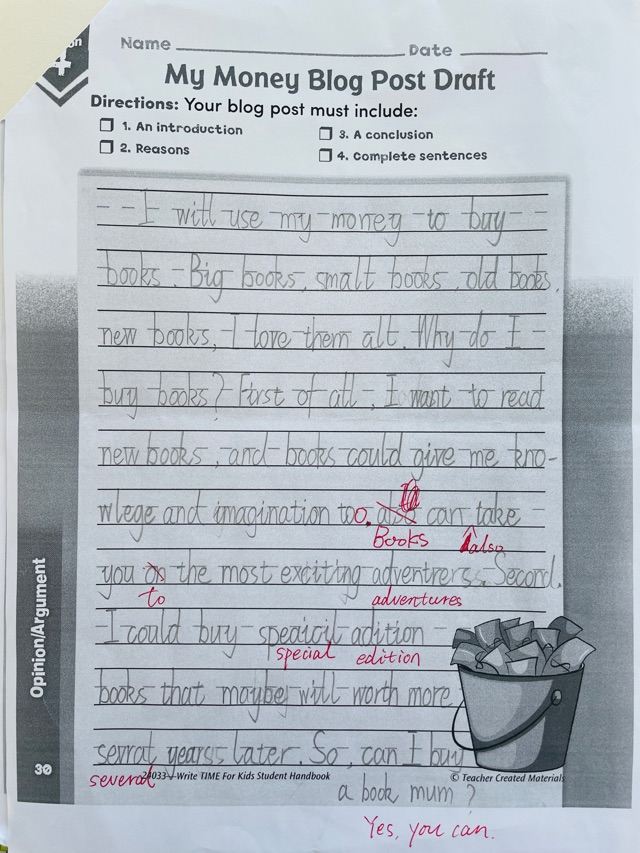 on
4
Name
Date
My Money Blog Post Draft
Directions: Your blog post must include:
1. An introduction
3. A conclusion
2. Reasons
4. Complete sentences
I will use my money to buy
books. Big books, small books, old books,
new books, I love them all. Why do I
buy books? First of all, I want to read
new books, and books could give me kno-
wlege and imagination too. also can take
Books
also
you on the most exciting adventrerss. Second,
to
adventures
I could buy speaicil adition
special edition
books that maybe will worth more
sevral years later. So, can I buy
several
a book mum?
Yes, you can.
Opinion/Argument
30
24033—Write TIME For Kids Student Handbook
© Teacher Created Materials